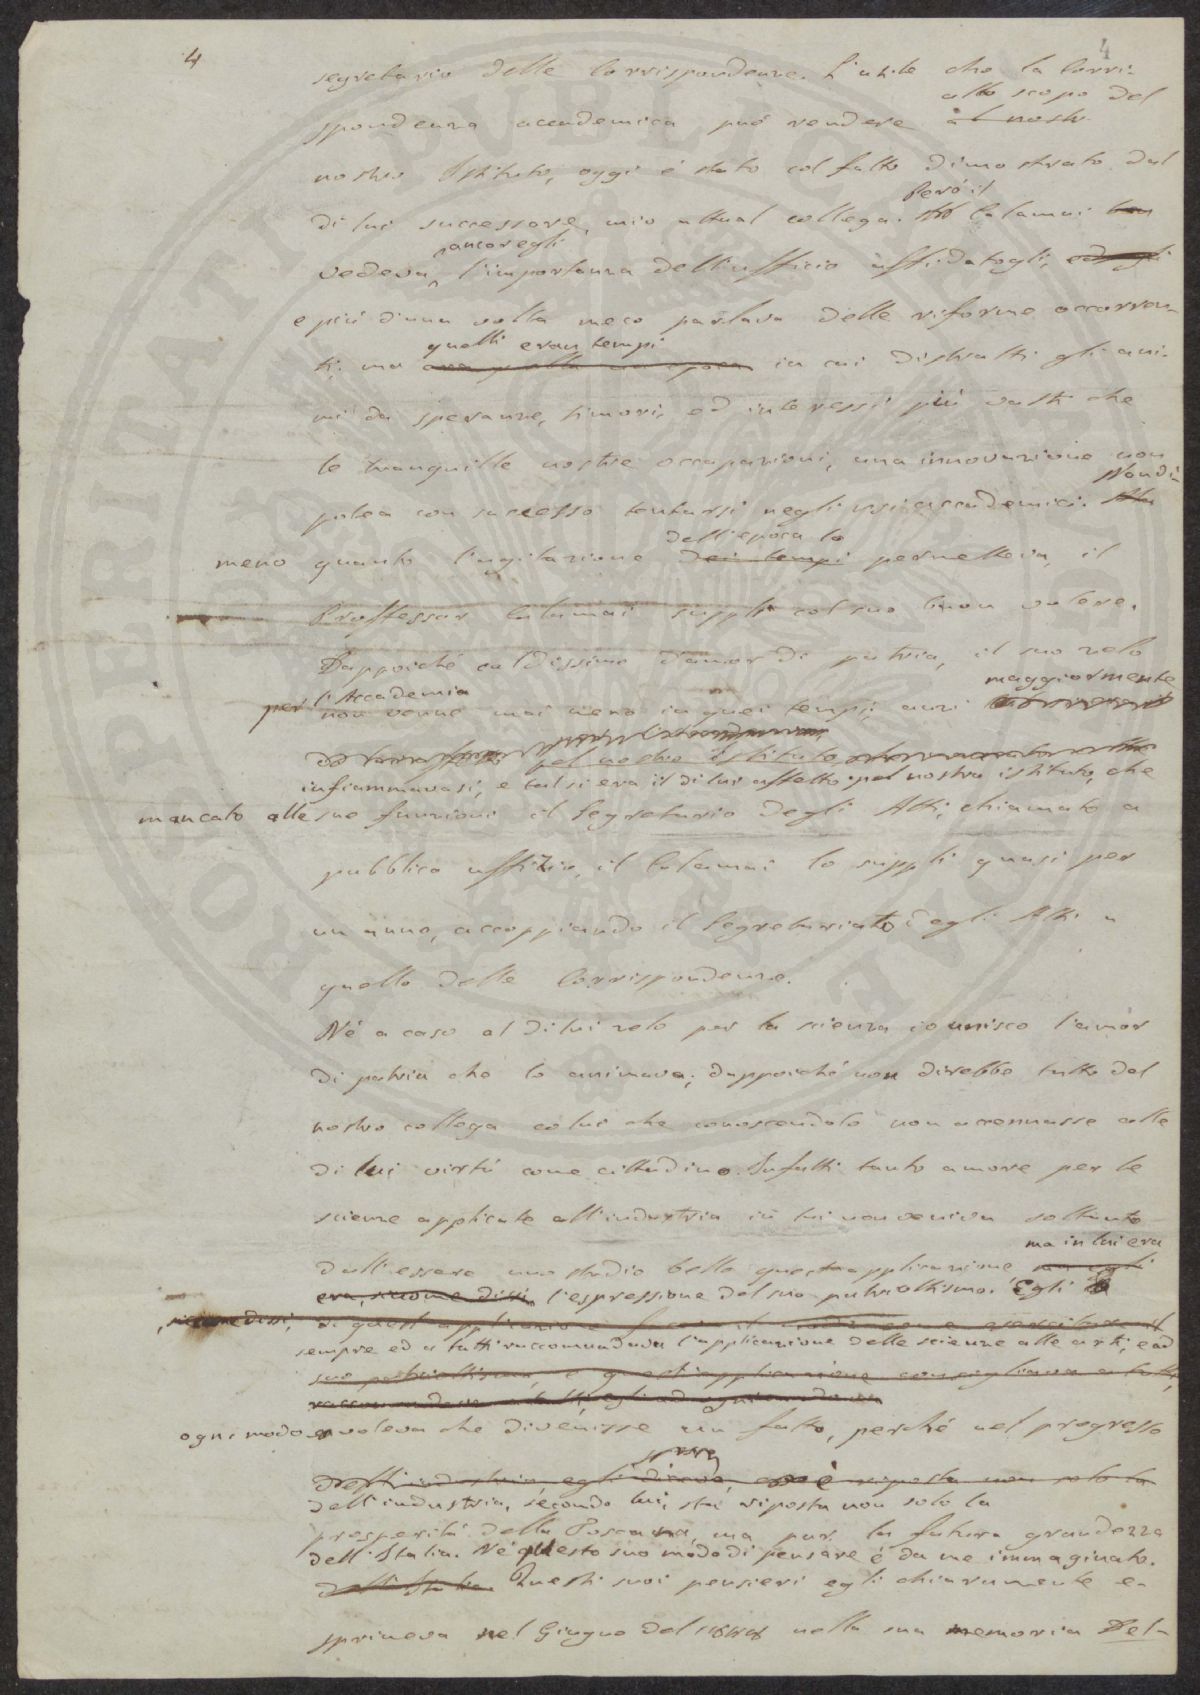 4
4
segretario delle Corrispondenze. L'utile che la Corri-
allo scopo del
spondenza accademica può rendere al nostr
nostro Istituto, oggi è stato col fatto dimostrato dal
Però il
di lui successore, mio attual collega. Calamai
ancor egli
vedeva, l'importanza dell'ufficio affidatogli, ed egli
e più d'una volta meco parlava delle riforme occorren-
quelli eran tempi
ti; ma era quella un epoca in cui distratti gli ani-
mi da speranze, timori, ed interessi più vasti che
le tranquille nostre occupazioni, una innovazione non
Nondi-
potea con successo tentarsi negli usi accademici. Ma
dell'epoca lo
meno quanto l'agitazione dei tempi permetteva, il
Proffessor Calamai supplì col suo buon volere.
Dappoiché caldissimo d'amor di patria, il suo zelo
maggiormente
per l'Accademia
non venne mai meno in quei tempi; anzi
pel nostro Istituto
infiammavasi, e tal si era il di lui affetto pel nostro istituto, che
mancato alle sue funzioni il Segretario degli Atti, chiamato a
pubblico uffizio, il Calamai lo supplì quasi per
un anno, accoppiando il Segretariato degli Atti a
quello delle Corrispondenze.
Né a caso al di lui zelo per la scienza io unisco l'amor
di patria che lo animava; dappoiché non direbbe tutto del
nostro collega colui che conoscendolo non accennasse alle
di lui virtù come cittadino. Infatti tanto amore per le
scienze applicate all'industria in lui non veniva soltanto
ma in lui era
dall'essere uno studio bello questa applicazione ma egli
era, siccome dissi, l'espressione del suo patriottismo. Egli
, siccome dissi, di quest'applicazione
sempre ed a tutti raccomandava l'applicazione delle scienze alle arti, e ad
suo patriottismo, e quest'applicazione consigliava a tutti,
raccomandava a tutti, egli ad ogni modo
ogni modo voleva che divenisse un fatto, perché nel progresso
dell'industria, egli diceva, è riposta non solo la
dell'industria, secondo lui, stai riposta non solo la
prosperità della Toscana, ma pur la futura grandezza
dell'Italia. Né questo suo modo di pensare è da me immaginato.
dell'Italia. Questi suoi pensieri egli chiaramente e-
sprimeva nel Giugno del 1848 nella sua memoria Del-